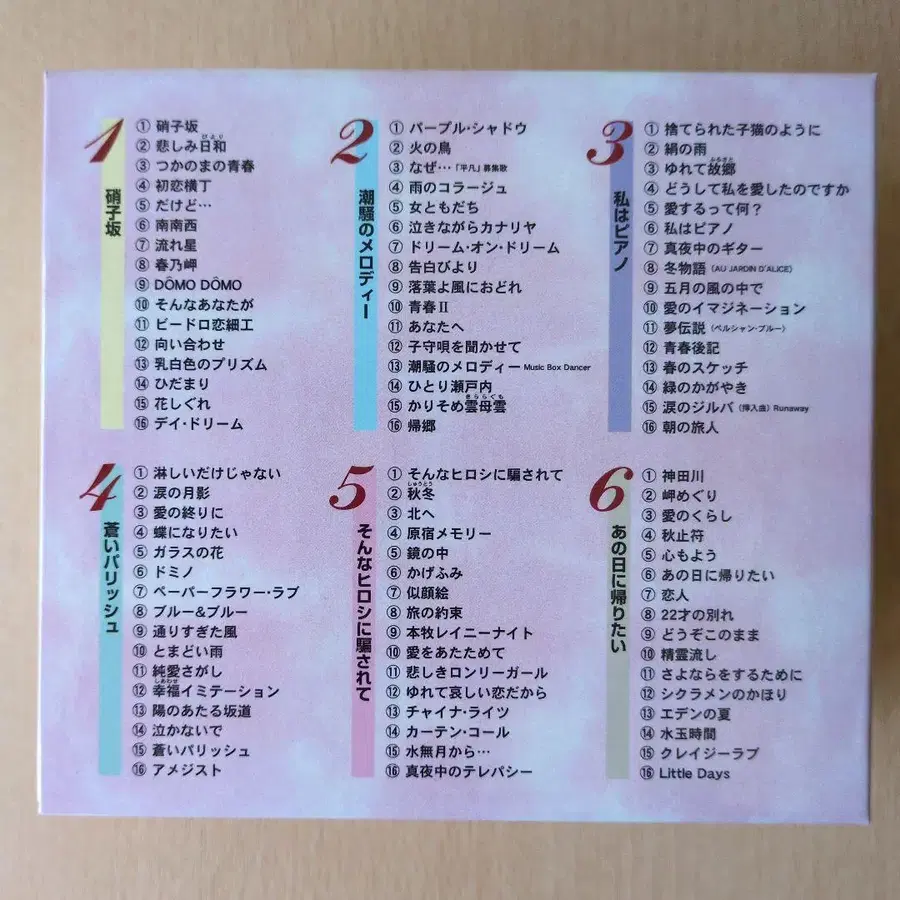 1
硝子坂
① 硝子坂
② 悲しみ日和
びより
③ つかのまの青春
④ 初恋横丁
⑤ だけど…
⑥ 南南西
⑦ 流れ星
⑧ 春乃岬
⑨ DÔMO DÔMO
⑩ そんなあなたが
⑪ ビードロ恋細工
⑫ 向い合わせ
⑬ 乳白色のプリズム
⑭ ひだまり
⑮ 花しぐれ
⑯ デイ・ドリーム
2
潮騒のメロディー
① パープル・シャドウ
② 火の鳥
③ なぜ…「平凡」募集歌
④ 雨のコラージュ
⑤ 女ともだち
⑥ 泣きながらカナリヤ
⑦ ドリーム・オン・ドリーム
⑧ 告白びより
⑨ 落葉よ風におどれ
⑩ 青春Ⅱ
⑪ あなたへ
⑫ 子守唄を聞かせて
⑬ 潮騒のメロディー Music Box Dancer
⑭ ひとり瀬戸内
⑮ かりそめ雲母雲
きららぐも
⑯ 帰郷
3
私はピアノ
① 捨てられた子猫のように
② 絹の雨
③ ゆれて故郷
ふるさと
④ どうして私を愛したのですか
⑤ 愛するって何?
⑥ 私はピアノ
⑦ 真夜中のギター
⑧ 冬物語（AU JARDIN D'ALICE）
⑨ 五月の風の中で
⑩ 愛のイマジネーション
⑪ 夢伝説（ペルシャン・ブルー）
⑫ 青春後記
⑬ 春のスケッチ
⑭ 緑のかがやき
⑮ 涙のジルバ（挿入曲）Runaway
⑯ 朝の旅人
4
蒼いパリッシュ
① 淋しいだけじゃない
② 涙の月影
③ 愛の終りに
④ 蝶になりたい
⑤ ガラスの花
⑥ ドミノ
⑦ ペーパーフラワー・ラブ
⑧ ブルー&ブルー
⑨ 通りすぎた風
⑩ とまどい雨
⑪ 純愛さがし
⑫ 幸福イミテーション
しあわせ
⑬ 陽のあたる坂道
⑭ 泣かないで
⑮ 蒼いパリッシュ
⑯ アメジスト
5
そんなヒロシに騙されて
① そんなヒロシに騙されて
② 秋冬
しゅうとう
③ 北へ
④ 原宿メモリー
⑤ 鏡の中
⑥ かげふみ
⑦ 似顔絵
⑧ 旅の約束
⑨ 本牧レイニーナイト
⑩ 愛をあたためて
⑪ 悲しきロンリーガール
⑫ ゆれて哀しい恋だから
⑬ チャイナ・ライツ
⑭ カーテン・コール
⑮ 水無月から…
⑯ 真夜中のテレパシー
6
あの日に帰りたい
① 神田川
② 岬めぐり
③ 愛のくらし
④ 秋止符
⑤ 心もよう
⑥ あの日に帰りたい
⑦ 恋人
⑧ 22才の別れ
⑨ どうぞこのまま
⑩ 精霊流し
⑪ さよならをするために
⑫ シクラメンのかほり
⑬ エデンの夏
⑭ 水玉時間
⑮ クレイジーラブ
⑯ Little Days